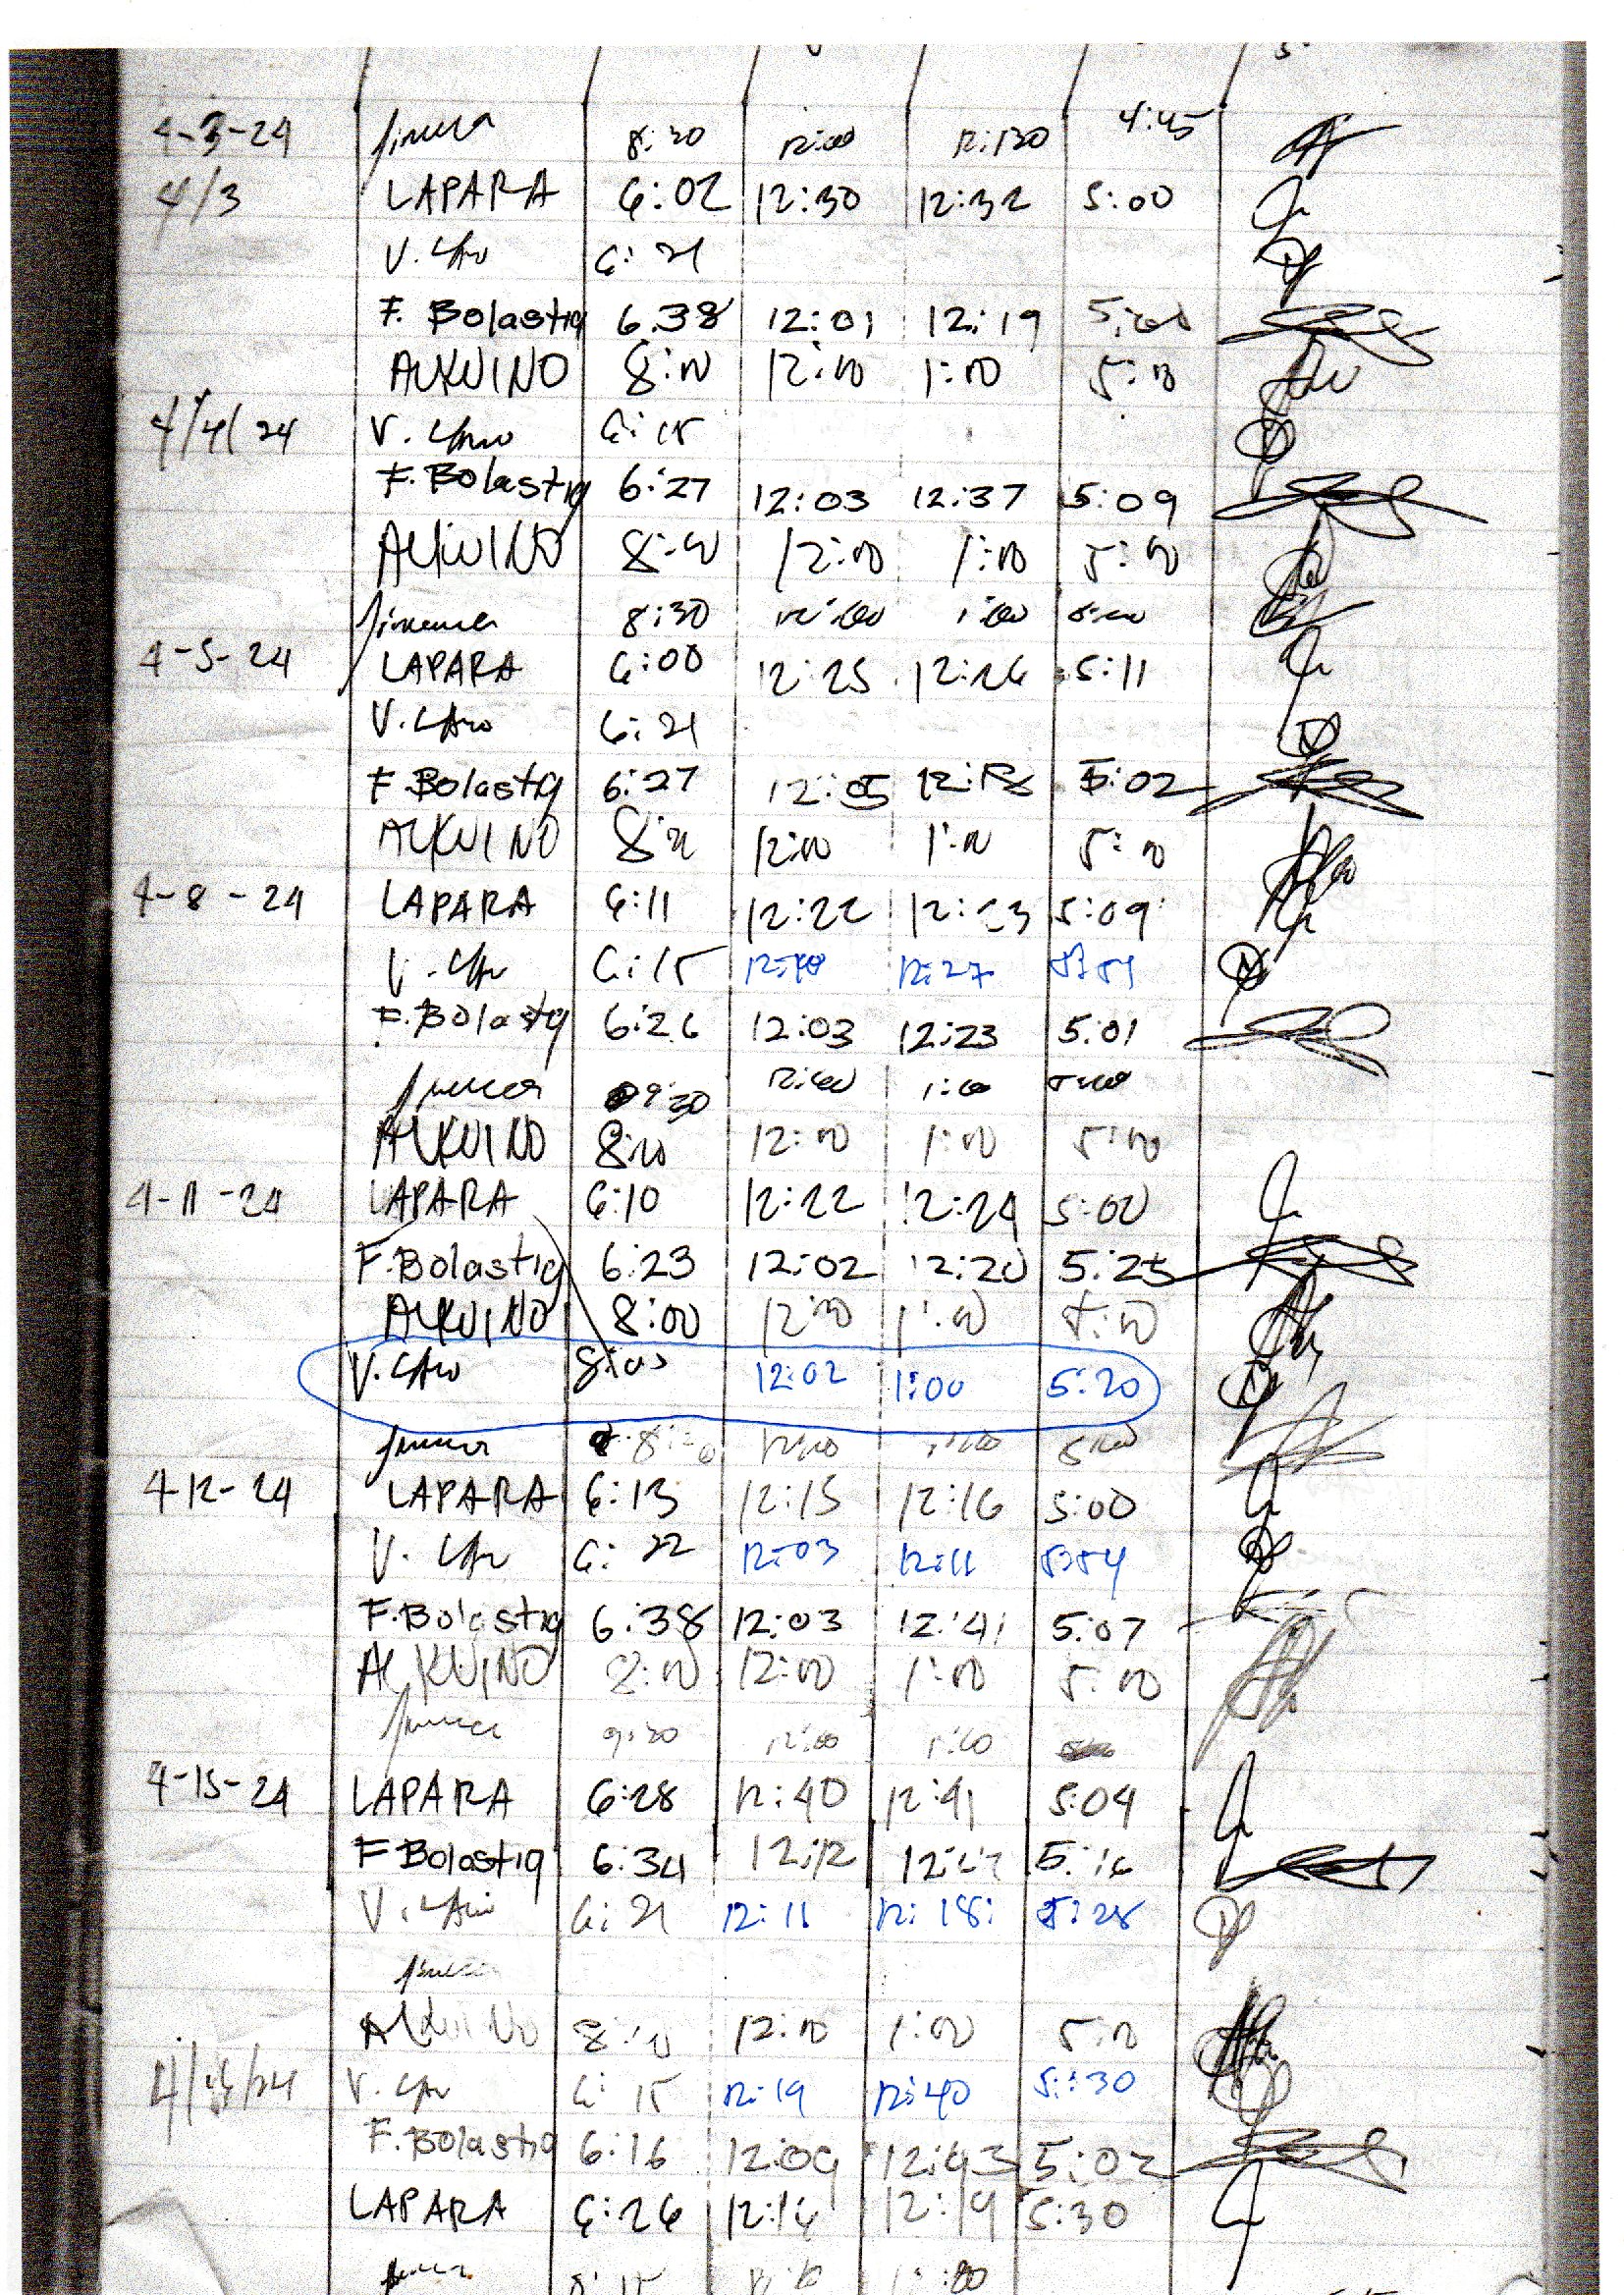 4-3-24 8:30 12:00 4:45
4/3 LAPARA 6:02 12:30 12:32 5:00
V. 6:21
F. Bolastig 6.38 12:01 12:19
ALKUINO 8:00 12:00 1:00 5:00
4/4/24 V. 6:15
F. Bolastig 6:27 12:03 12:37 5:09
ALKUINO 8:00 12:00 1:00 5:00
8:30 12:00 1:00 5:00
4-5-24 LAPARA 6:00 12:25 12:26 5:11
V. 6:21
F. Bolastig 6:27 12:05 5:02
ALKUINO 8:00 12:00 1:00 5:00
4-8-24 LAPARA 6:11 12:22 12:23 5:09
V. 6:15 12:27
F. Bolastig 6:26 12:03 12:23 5:01
9:30 12:00 1:00 5:00
ALKUINO 8:00 12:00 1:00 5:00
4-11-24 LAPARA 6:10 12:22 12:24 5:00
F. Bolastig 6:23 12:02 12:20 5:25
ALKUINO 8:00 12:00 1:00 5:00
V. 8:03 12:02 1:00 5:20
12:00 1:00 5:00
4-12-24 LAPARA 6:13 12:15 12:16 5:00
V. 6:22 12:03 12:11
F. Bolastig 6:38 12:03 12:41 5:07
ALKUINO 8:00 12:00 1:00 5:00
9:30 12:00 1:00
4-15-24 LAPARA 6:28 12:40 12:41 5:04
F Bolastig 6:34 12:12 5:16
V. 6:21 12:11 12:18 5:28
ALKUINO 8:00 12:00 1:00 5:00
V. 6:15 12:19 12:40 5:30
F. Bolastig 6:16 12:09 12:43 5:02
LAPARA 6:26 12:16 12:19 5:30
8:15